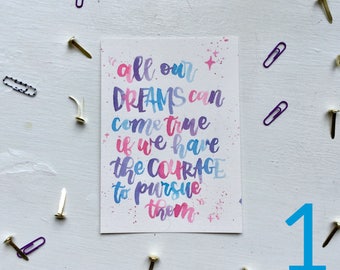 all our
DREAMS can
come true
if we have
the COURAGE
to pursue
them
1